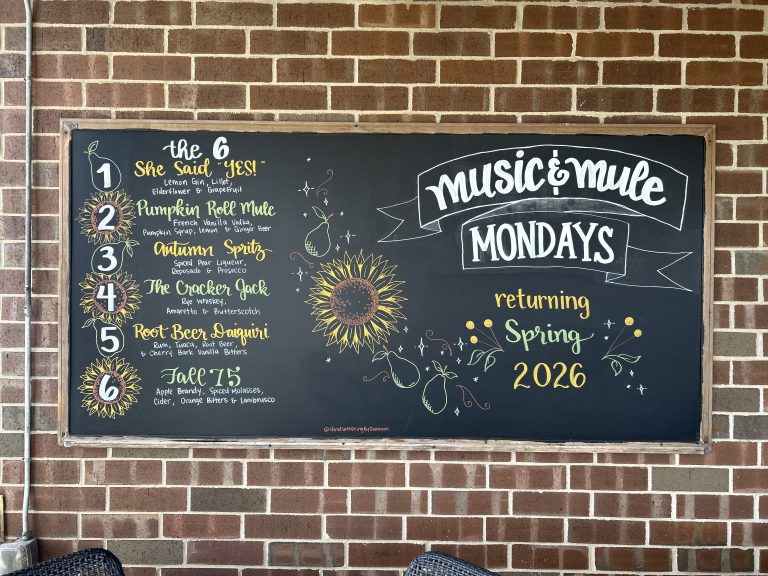 the 6
1
She Said "YES!"
Lemon Gin, Lillet,
Elderflower & Grapefruit
2
Pumpkin Roll Mule
French Vanilla Vodka,
Pumpkin Syrup, Lemon & Ginger Beer
3
Autumn Spritz
Spiced Pear Liqueur,
Reposado & Prosecco
4
The Cracker Jack
Rye Whiskey,
Amaretto & Butterscotch
5
Root Beer Daiquiri
Rum, Tuaca, Root Beer,
& Cherry Bark Vanilla Bitters
6
Fall 75
Apple Brandy, Spiced Molasses,
Cider, Orange Bitters & Lambrusco
music & mule
MONDAYS
returning
Spring
2026
@HandletteringByShannon